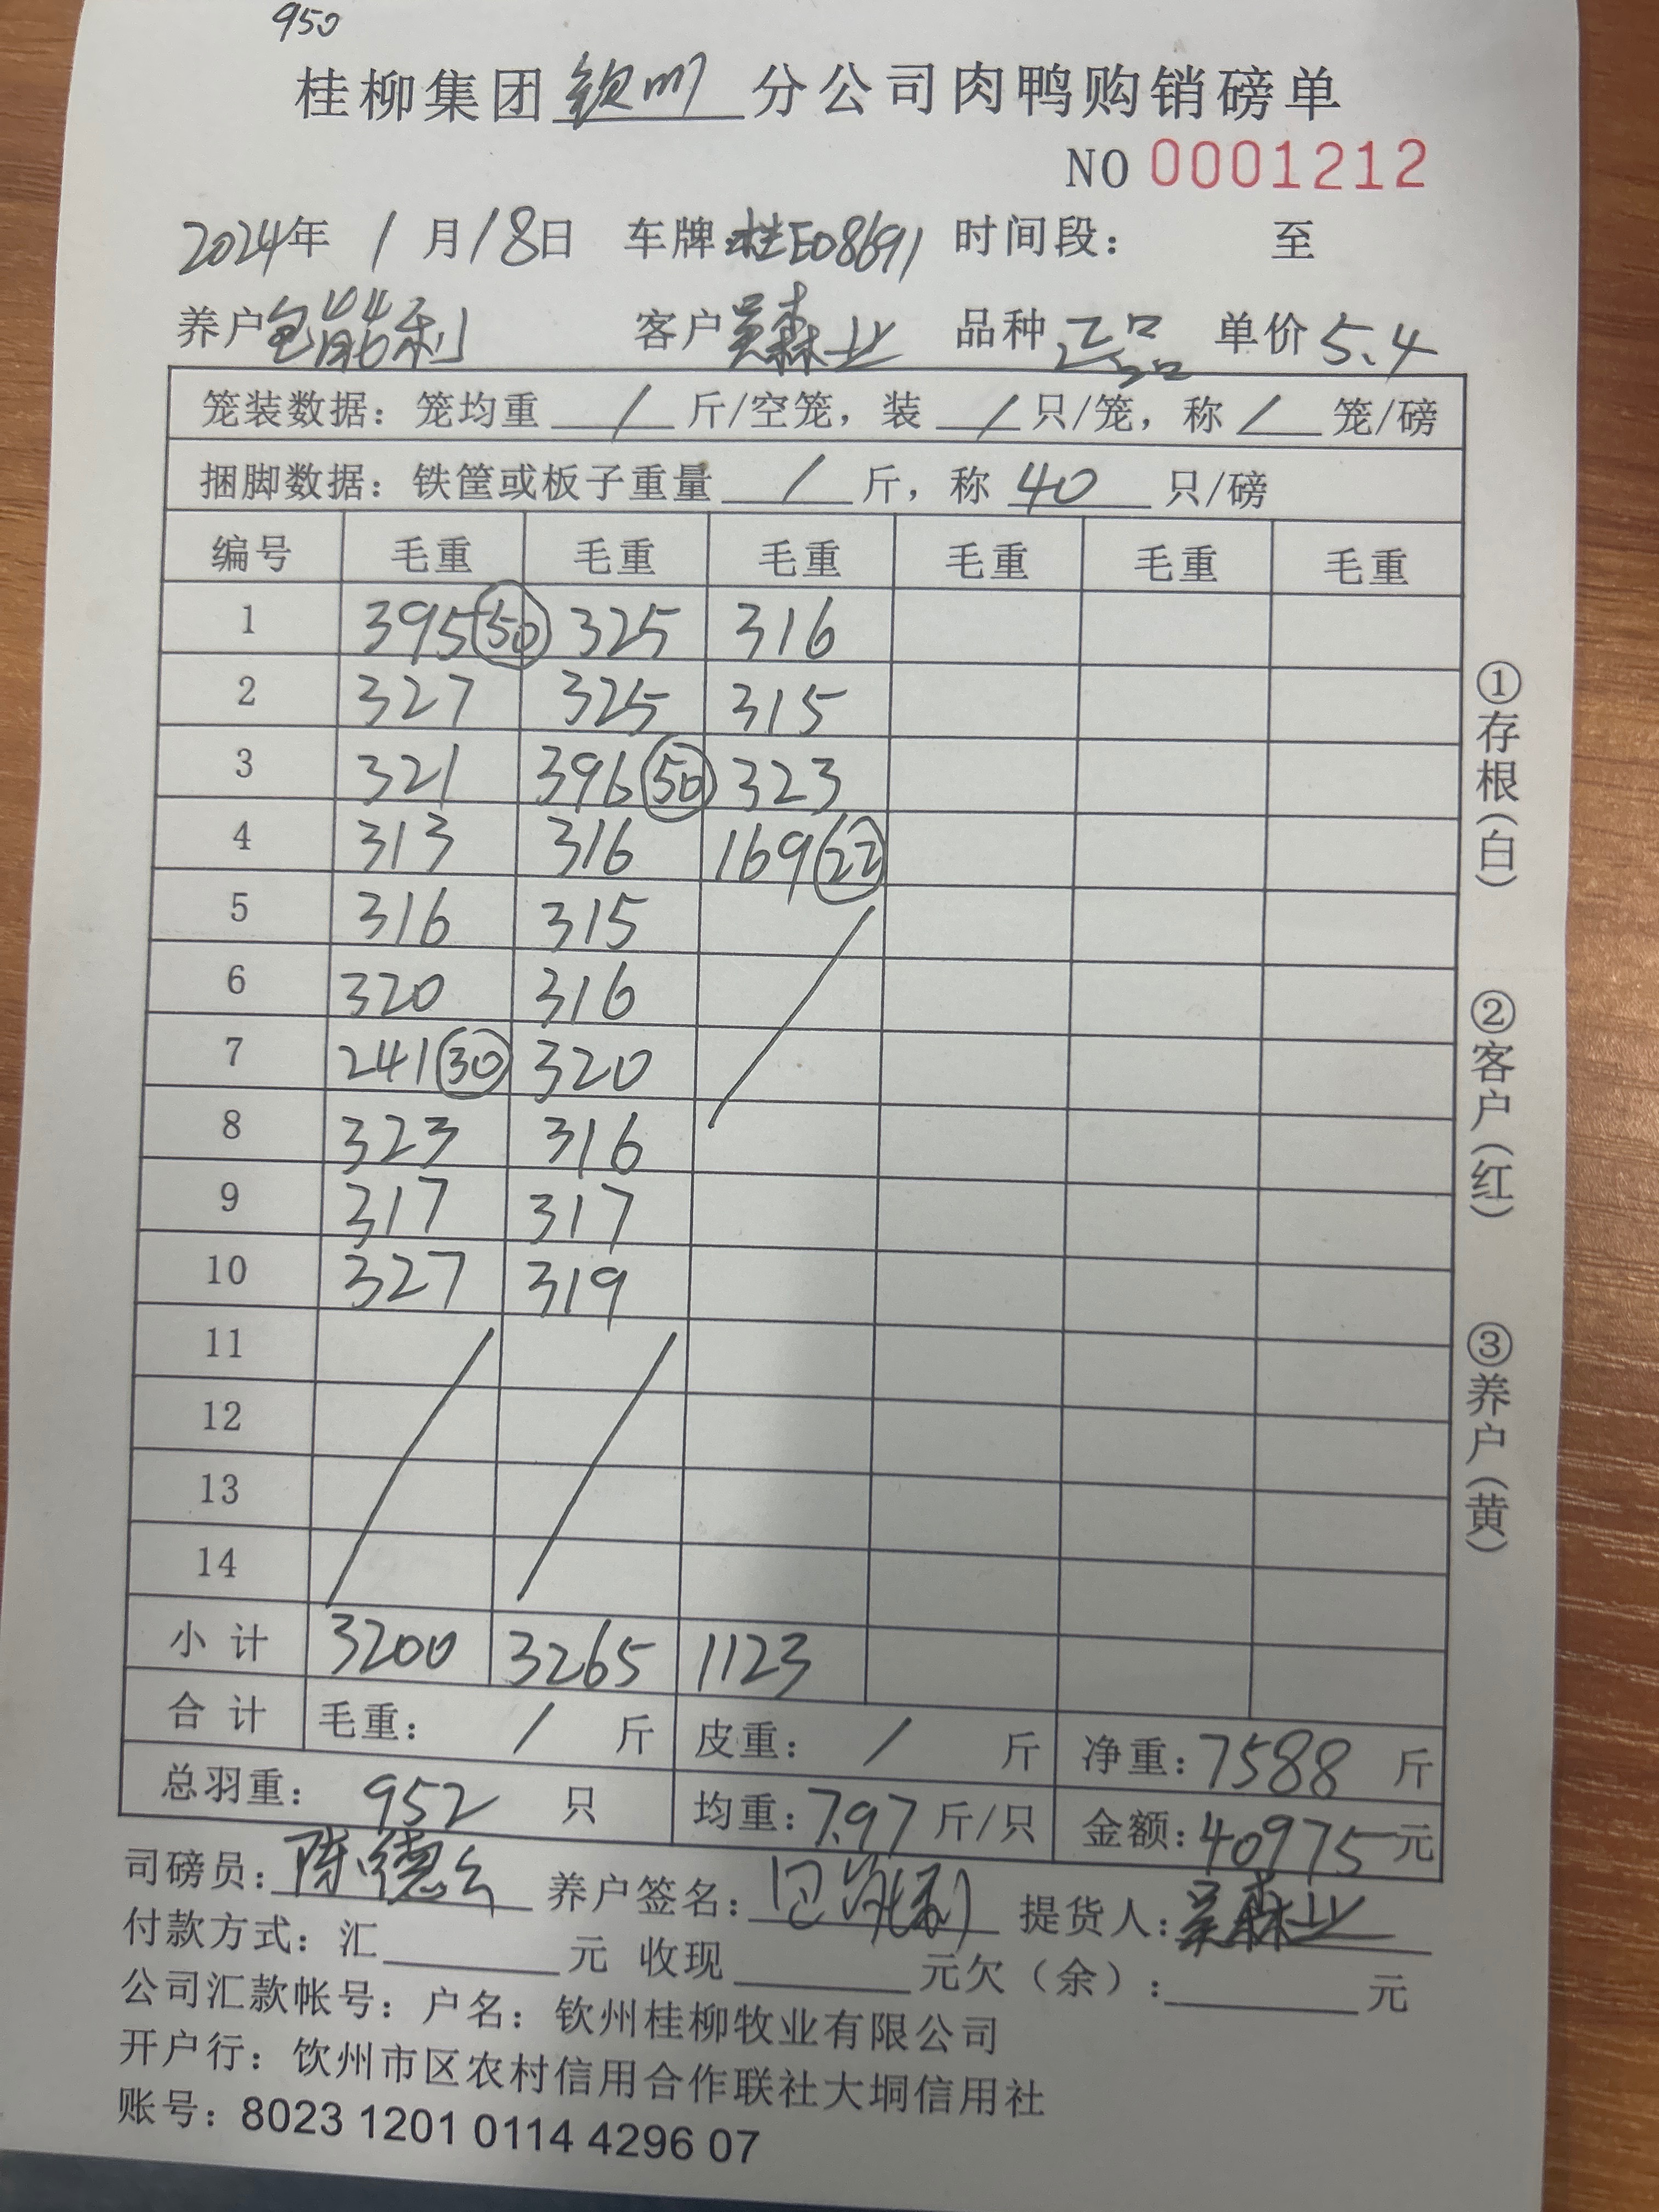 950
桂柳集团钦州分公司肉鸭购销磅单
NO 0001212
2024年 1月18日 车牌:桂E08691 时间段: 至
养户 能利 客户 吴森业 品种 正品 单价 5.4
笼装数据: 笼均重 / 斤/空笼, 装 / 只/笼, 称 / 笼/磅
捆脚数据: 铁筐或板子重量 / 斤, 称 40 只/磅
编号 毛重 毛重 毛重 毛重 毛重 毛重
1 395 50 325 316
2 327 325 315
3 321 396 50 323
4 313 316 169 22
5 316 315
6 320 316
7 241 30 320
8 323 316
9 317 317
10 327 319
11
12
13
14
小计 3200 3265 1123
合计 毛重: / 斤 皮重: / 斤 净重: 7588 斤
总羽重: 952 只 均重: 7.97 斤/只 金额: 40975 元
司磅员: 陈德 养户签名: 提货人: 吴森业
付款方式: 汇 元 收现 元欠(余): 元
公司汇款帐号: 户名: 钦州桂柳牧业有限公司
开户行: 饮州市区农村信用合作联社大垌信用社
账号: 8023 1201 0114 4296 07
①存根(白)
②客户(红)
③养户(黄)